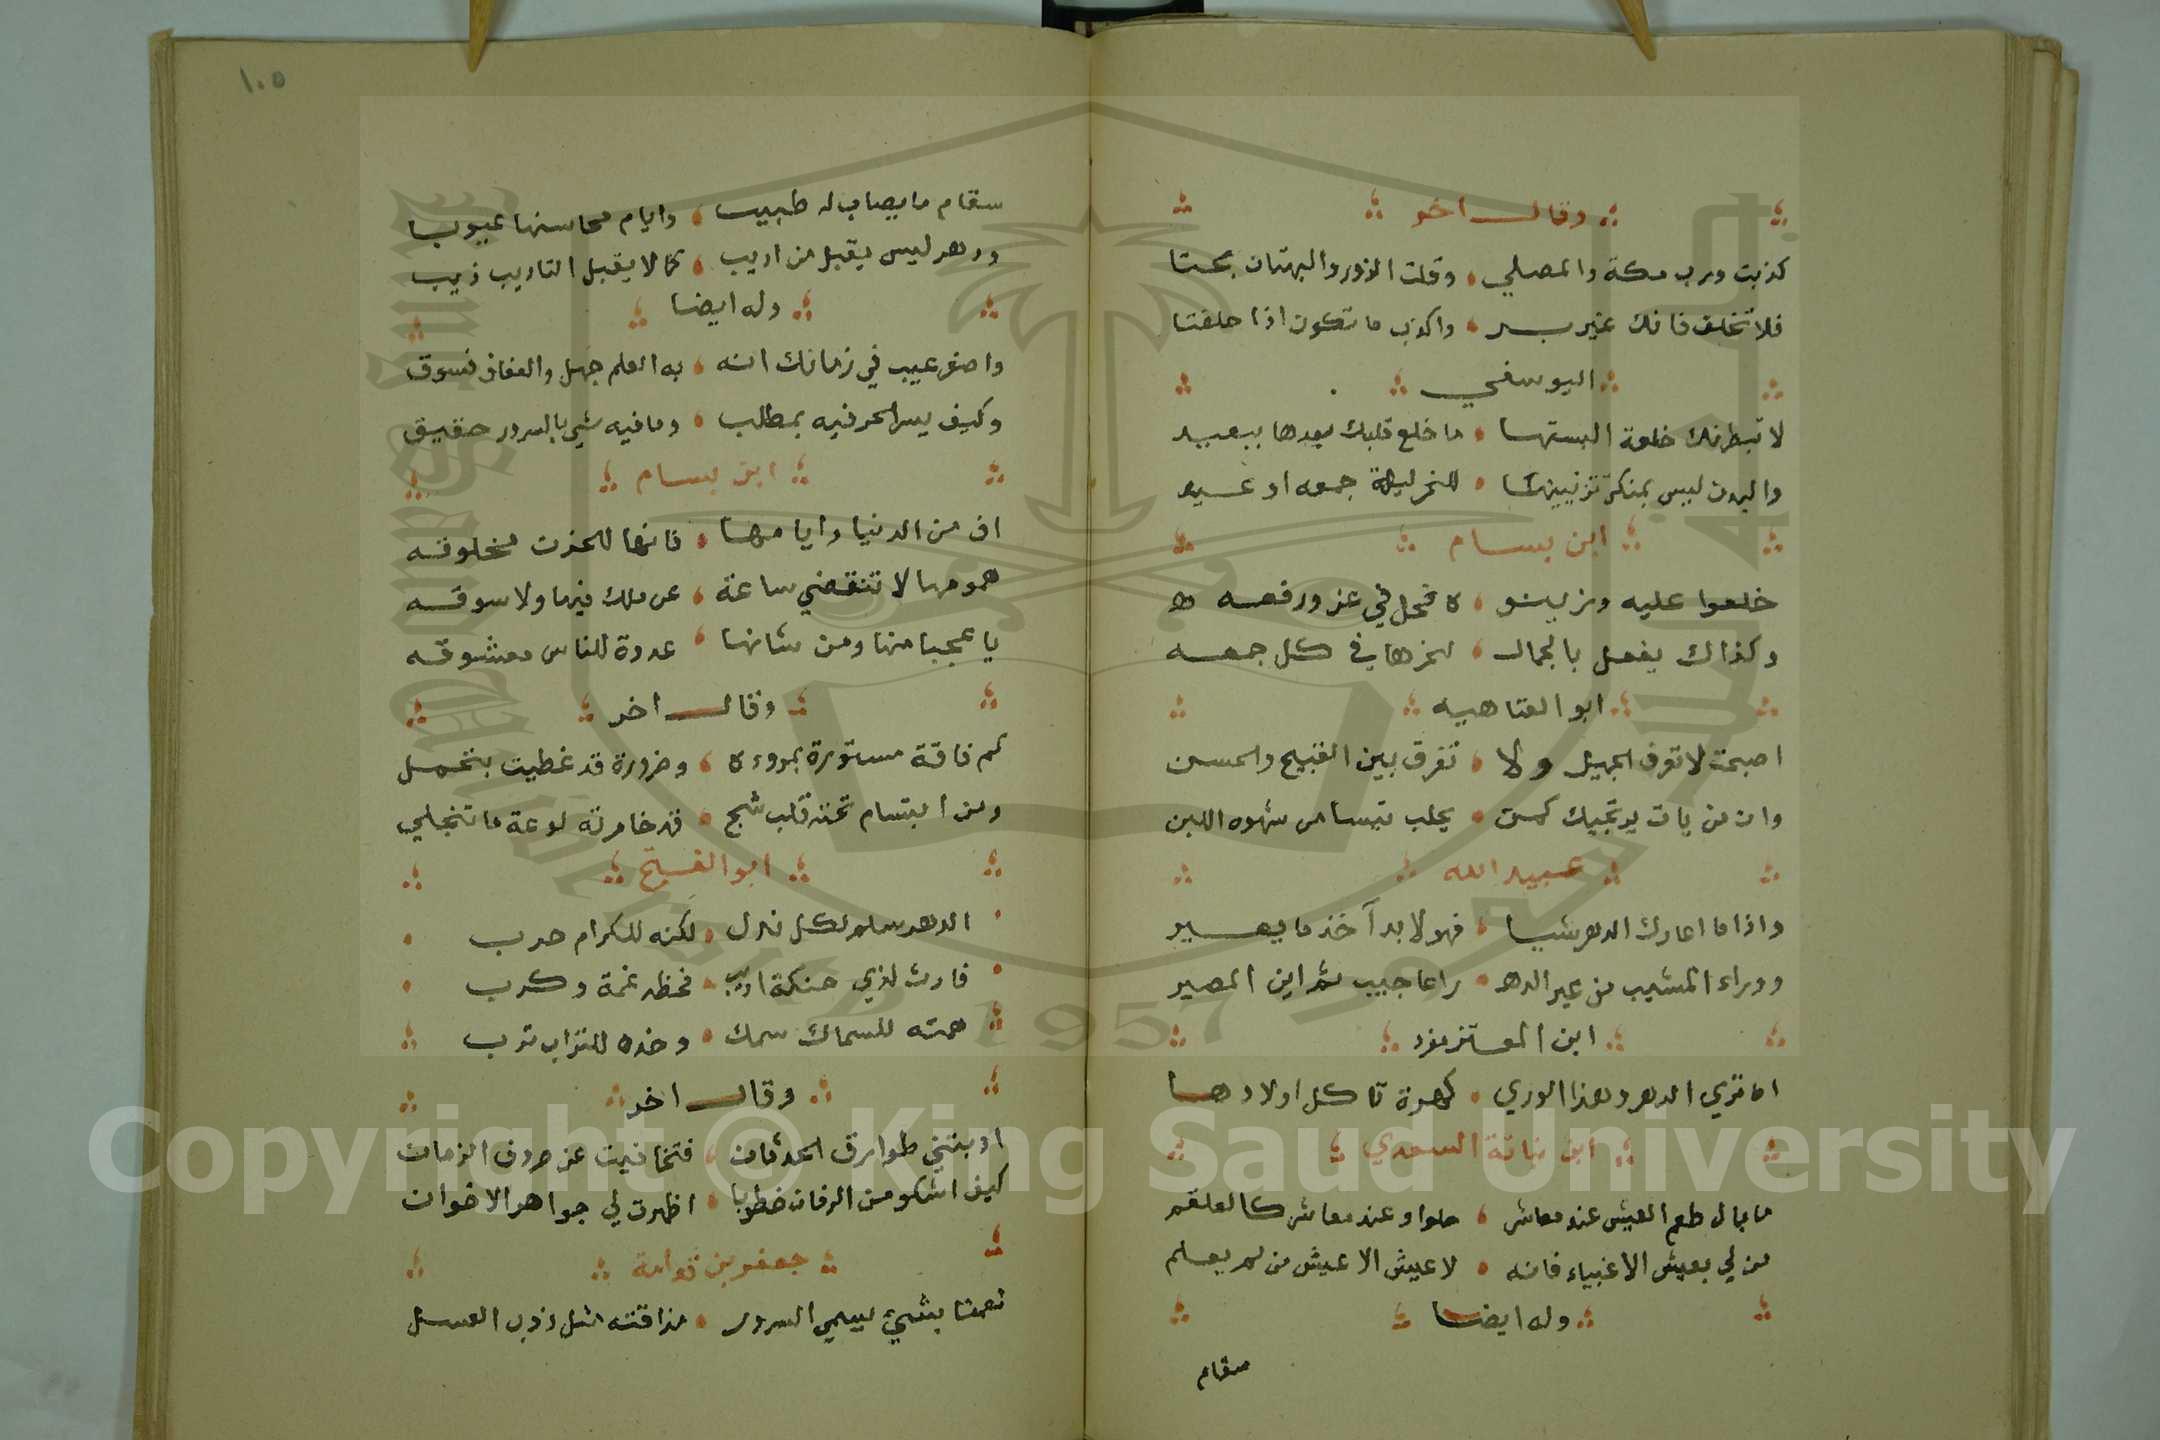 وقال اخر
كذبت ورب مكة والمصلي وقلت الزور والبهتان بحتا
فلا تخلف فانك غير بر واكذب ما تكون اذا حلفتا
اليوسفي
لا تبطرنك خلعة البستها ما خلع قلبك بعدها ببعيد
والبدن ليس بمنكر تزيينها للنحر ليلة جمعه او عيد
ابن بسام
خلعوا عليه وزينو ه فحل في عز ورفعه
وكذاك يفعل بالجمال لنحرها في كل جمعه
ابو العتاهيه
اصبحت لا تعرف الجميل ولا تفرق بين القبيح والحسن
وان من بات يرتجيك كمن يحلب تيسا من شهوه اللبن
عبيد الله
واذا ما اعارك الدهر شيا فهو لا بد آخذ ما يعير
ووراء المشيب من عير الدهر راعاجيب ثم اين المصير
ابن المعتز مفرد
اما تري الدهر وهذا الوري كهرة تاكل اولادها
ابن نباتة السعدي
ما بال طعم العيش عند معاشر حلوا وعند معاشر كالعلقم
من لي بعيش الاغبياء فانه لا عيش الا عيش من لم يعلم
وله ايضا
سقام
١٠٥
سقام ما يصاب له طبيب وايام محاسنها عيوب
ودهر ليس يقبل من اديب كما لا يقبل التاديب ذيب
وله ايضا
واصغر عيب في زمانك انه به العلم جهل والعفاف فسوق
وكيف يسر الحر فيه بمطلب وما فيه شي بالسرور حقيق
ابن بسام
اف من الدنيا وايامها فانها للحزن مخلوقه
همومها لا تنقضي ساعة عن ملك فيها ولا سوقه
يا عجبا منها ومن شانها عدوة للناس معشوقه
وقال اخر
كم فاقة مستورة بمروءه وضرورة قد غطيت بتجمل
ومن ابتسام تحته قلب شج قد خامرته لوعة ما تنجلي
ابو الفتح
الدهر سلم لكل نذل لكنه للكرام حرب
فارث لذي حنكة اديب فحظه غمة وكرب
همته للسماك سمك وخده للتراب ترب
وقال اخر
ادبتني طوارق الحدثان فتجافيت عن صروف الزمان
كيف اشكو من الزمان خطوبا اظهرت لي جواهر الاخوان
جعفر بن قدامة
نعمنا بشيء يسمي السرور مذاقته مثل ذوب العسل
Copyright © King Saud University
1957